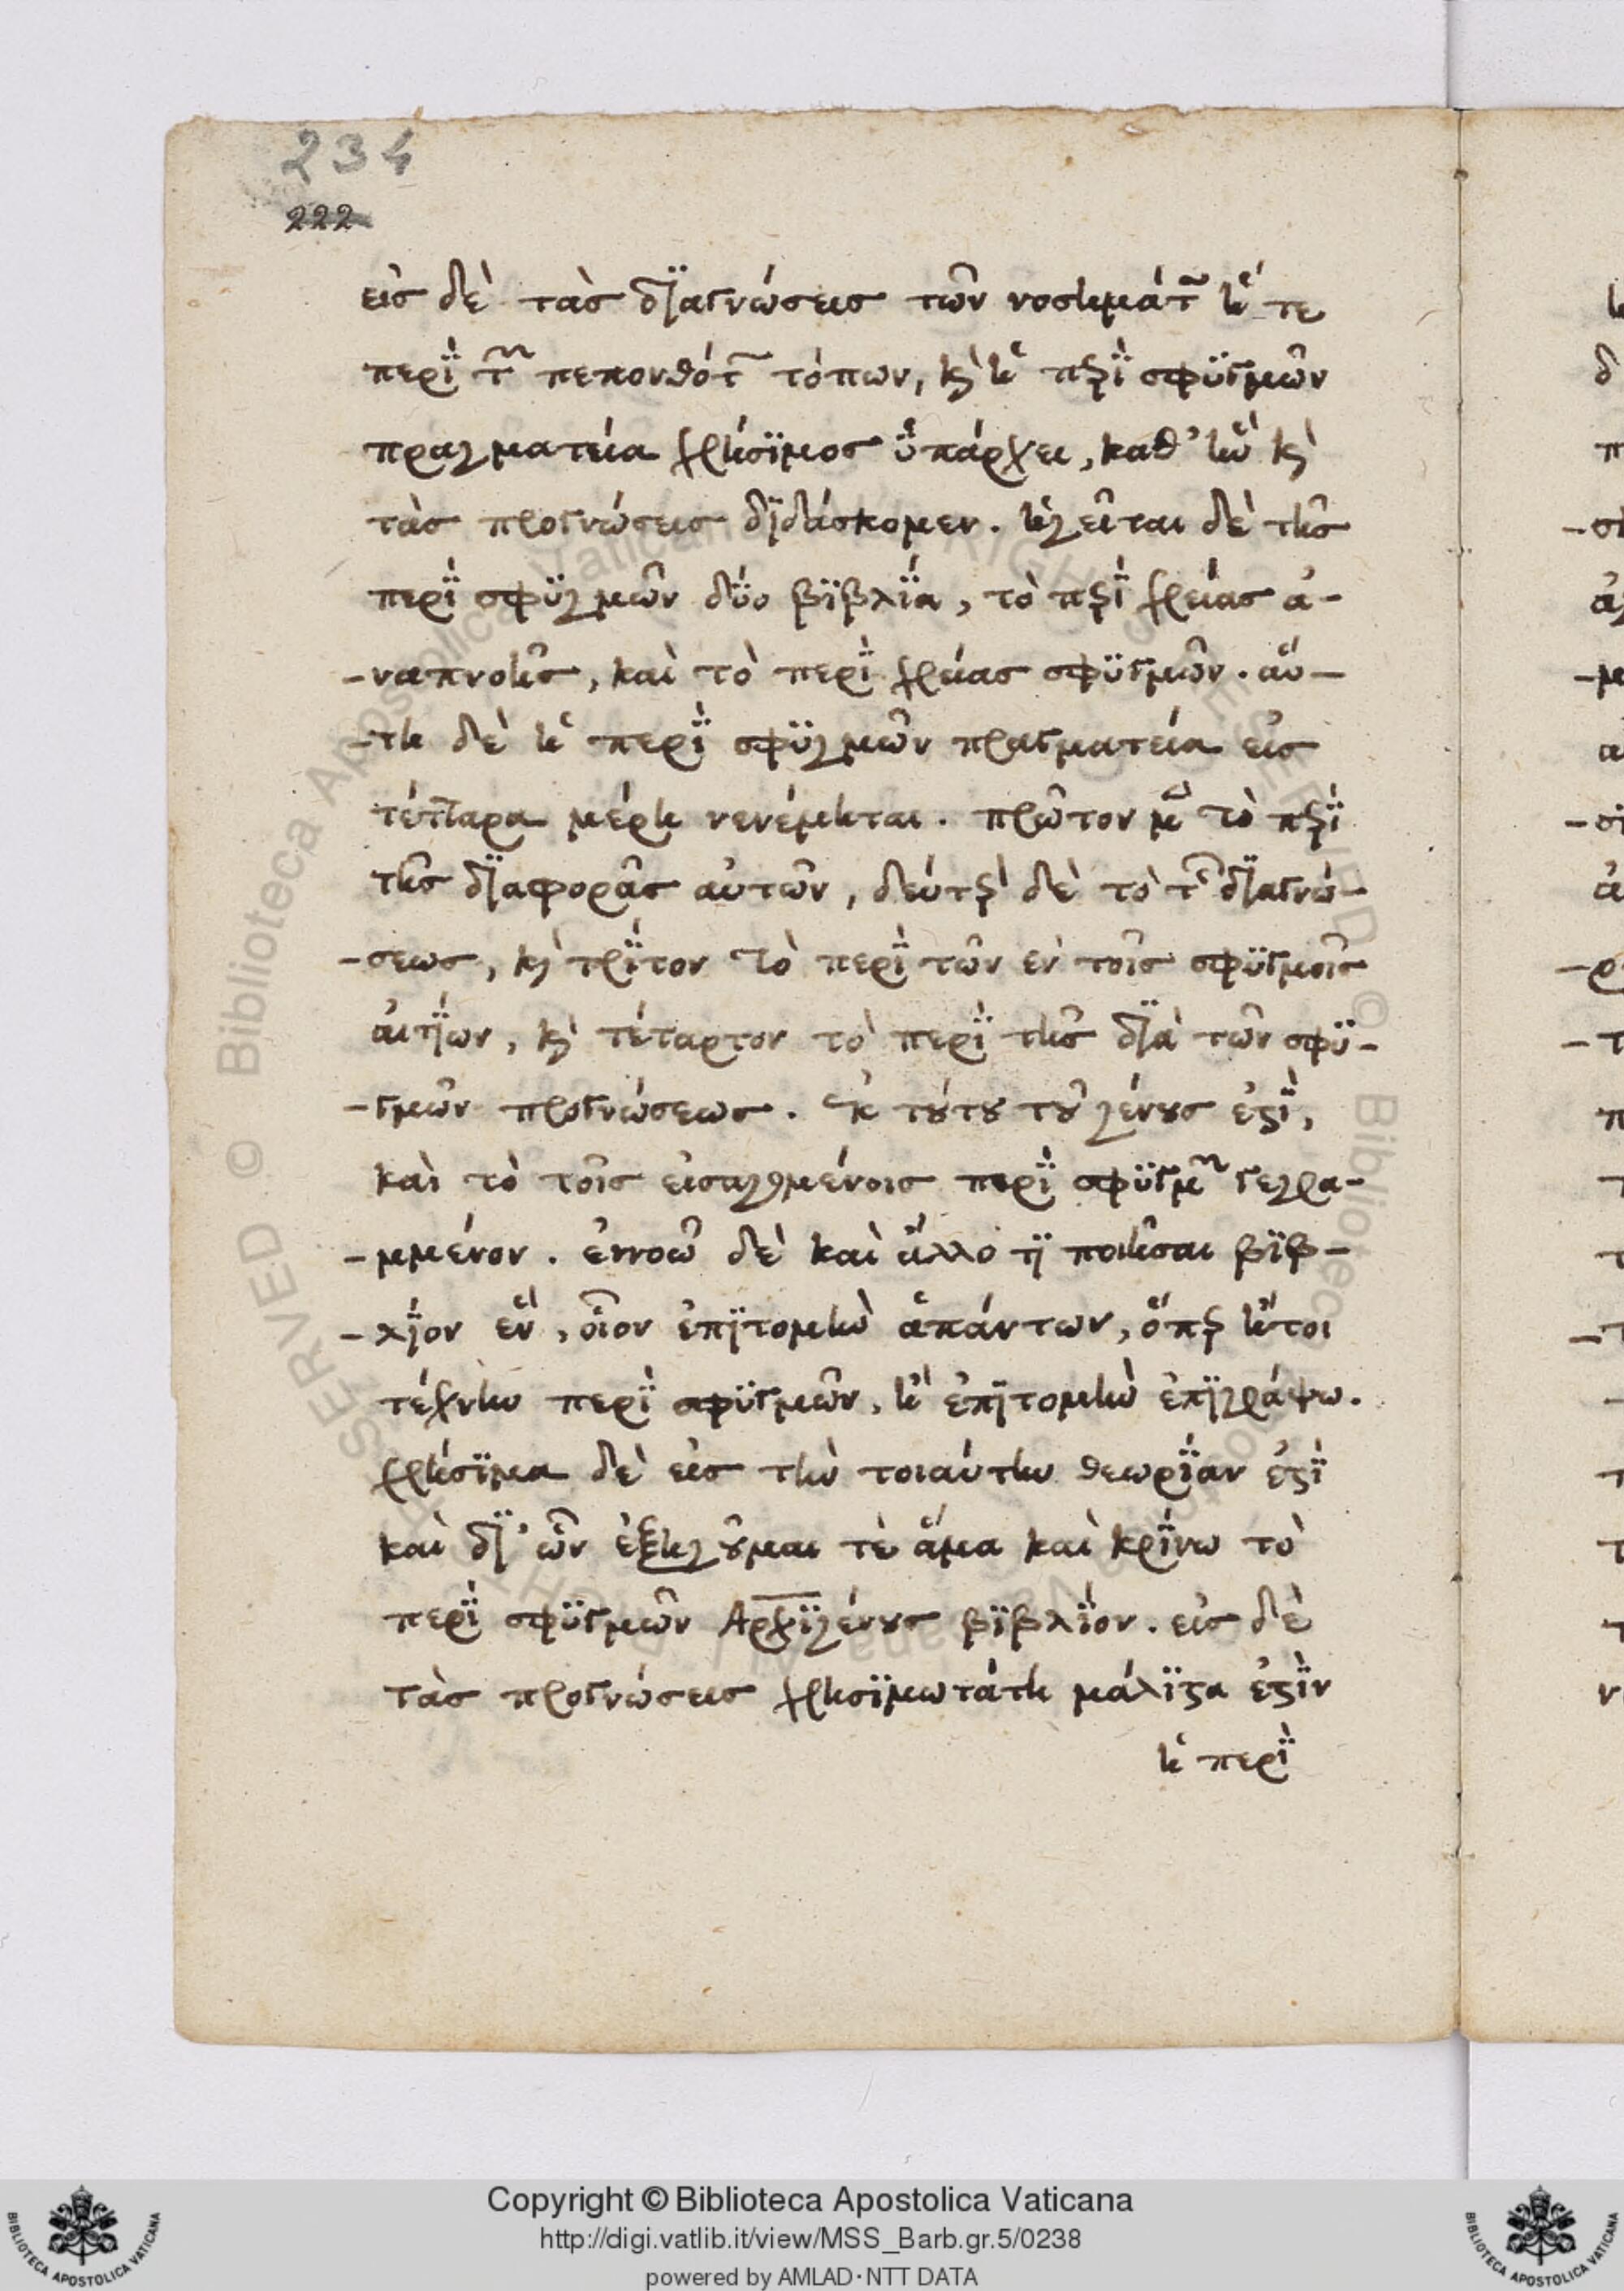 234
222
εἰς δὲ τὰς δϊαγνώσεις τῶν νοσημάτ͂ ἥ τε
περὶ τ͂ πεπονθότ͂ τόπων, κ̀ ἡ πϟὶ σφϋγμῶν
πραγματεία χρήσϊμος ὑπάρχει, καθ’ ἣν κ̀
τὰς προγνώσεις δϊδάσκομεν. ἡγεῖται δὲ τῆς
περὶ σφϋγμῶν δύο βϊβλία, τὸ πϟὶ χρείας ἀ-
-ναπνοῆς, καὶ τὸ περὶ χρείας σφϋγμῶν. αὕ-
-τη δὲ ἡ περὶ σφϋγμῶν πραγματεία εἰς
τέτταρα μέρη νενέμηται. πρῶτον μ̃ τὸ πϟὶ
τῆς δϊαφορᾶς αὐτῶν, δεύτϟ̀ δὲ τὸ τ͂ δϊαγνώ-
-σεως, κ̀ τρίτον τὸ περὶ τῶν ἐν τοῖς σφϋγμοῖς
αἰτίων, κ̀ τέταρτον τὸ περὶ τῆς δϊὰ τῶν σφϋ-
-γμῶν προγνώσεως. ἐκ τȣ́τȣ τȣ͂ γένȣς ἐϛὶ,
καὶ τὸ τοῖς εἰσαγομένοις περὶ σφϋγμ͂ γεγρα-
-μμένον. ἐννοῶ δὲ καὶ ἄλλο τϊ ποιῆσαι βϊβ-
-λίον ἓν, οἷον ἐπϊτομὴν ἁπάντων, ὅπϟ ἤτοι
τέχνην περὶ σφϋγμῶν, ἢ ἐπϊτομὴν ἐπϊγράψω.
χρήσϊμα δὲ εἰς τὴν τοιαύτην θεωρίαν ἐϛὶ
καὶ δϊ’ ὧν ἐξηγȣ͂μαι τὲ ἅμα καὶ κρίνω τὸ
περὶ σφϋγμῶν Αρχϊγένȣς βϊβλίον. εἰς δὲ
τὰς προγνώσεις χρησϊμωτάτη μάλϊϛα ἐϛὶν
ἡ περὶ
Copyright © Biblioteca Apostolica Vaticana
http://digi.vatlib.it/view/MSS_Barb.gr.5/0238
powered by AMLAD·NTT DATA